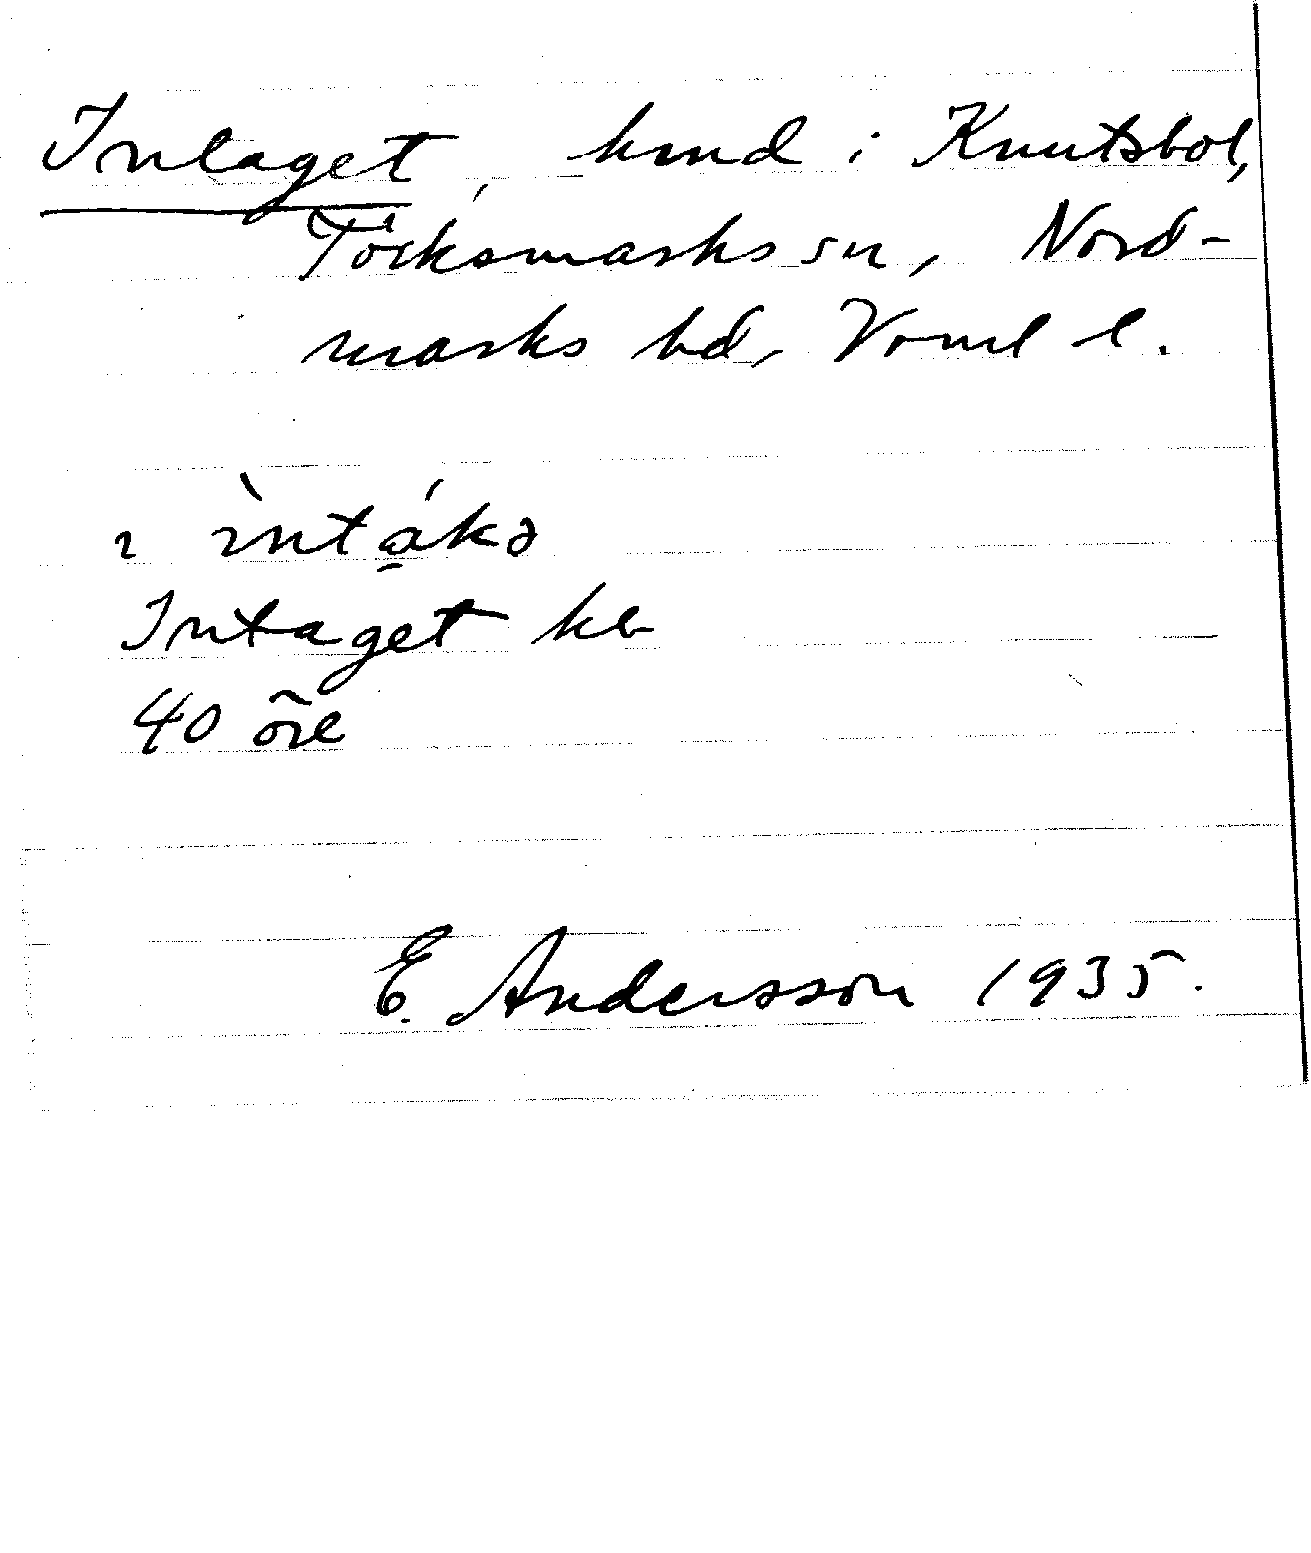 Intaget, hmd i Knutsbol,
Töcksmarks sn, Nord-
marks hd, Vrml l.
ı ìntá̱kə
Intaget kb
40 öre
E. Andersson 1935.